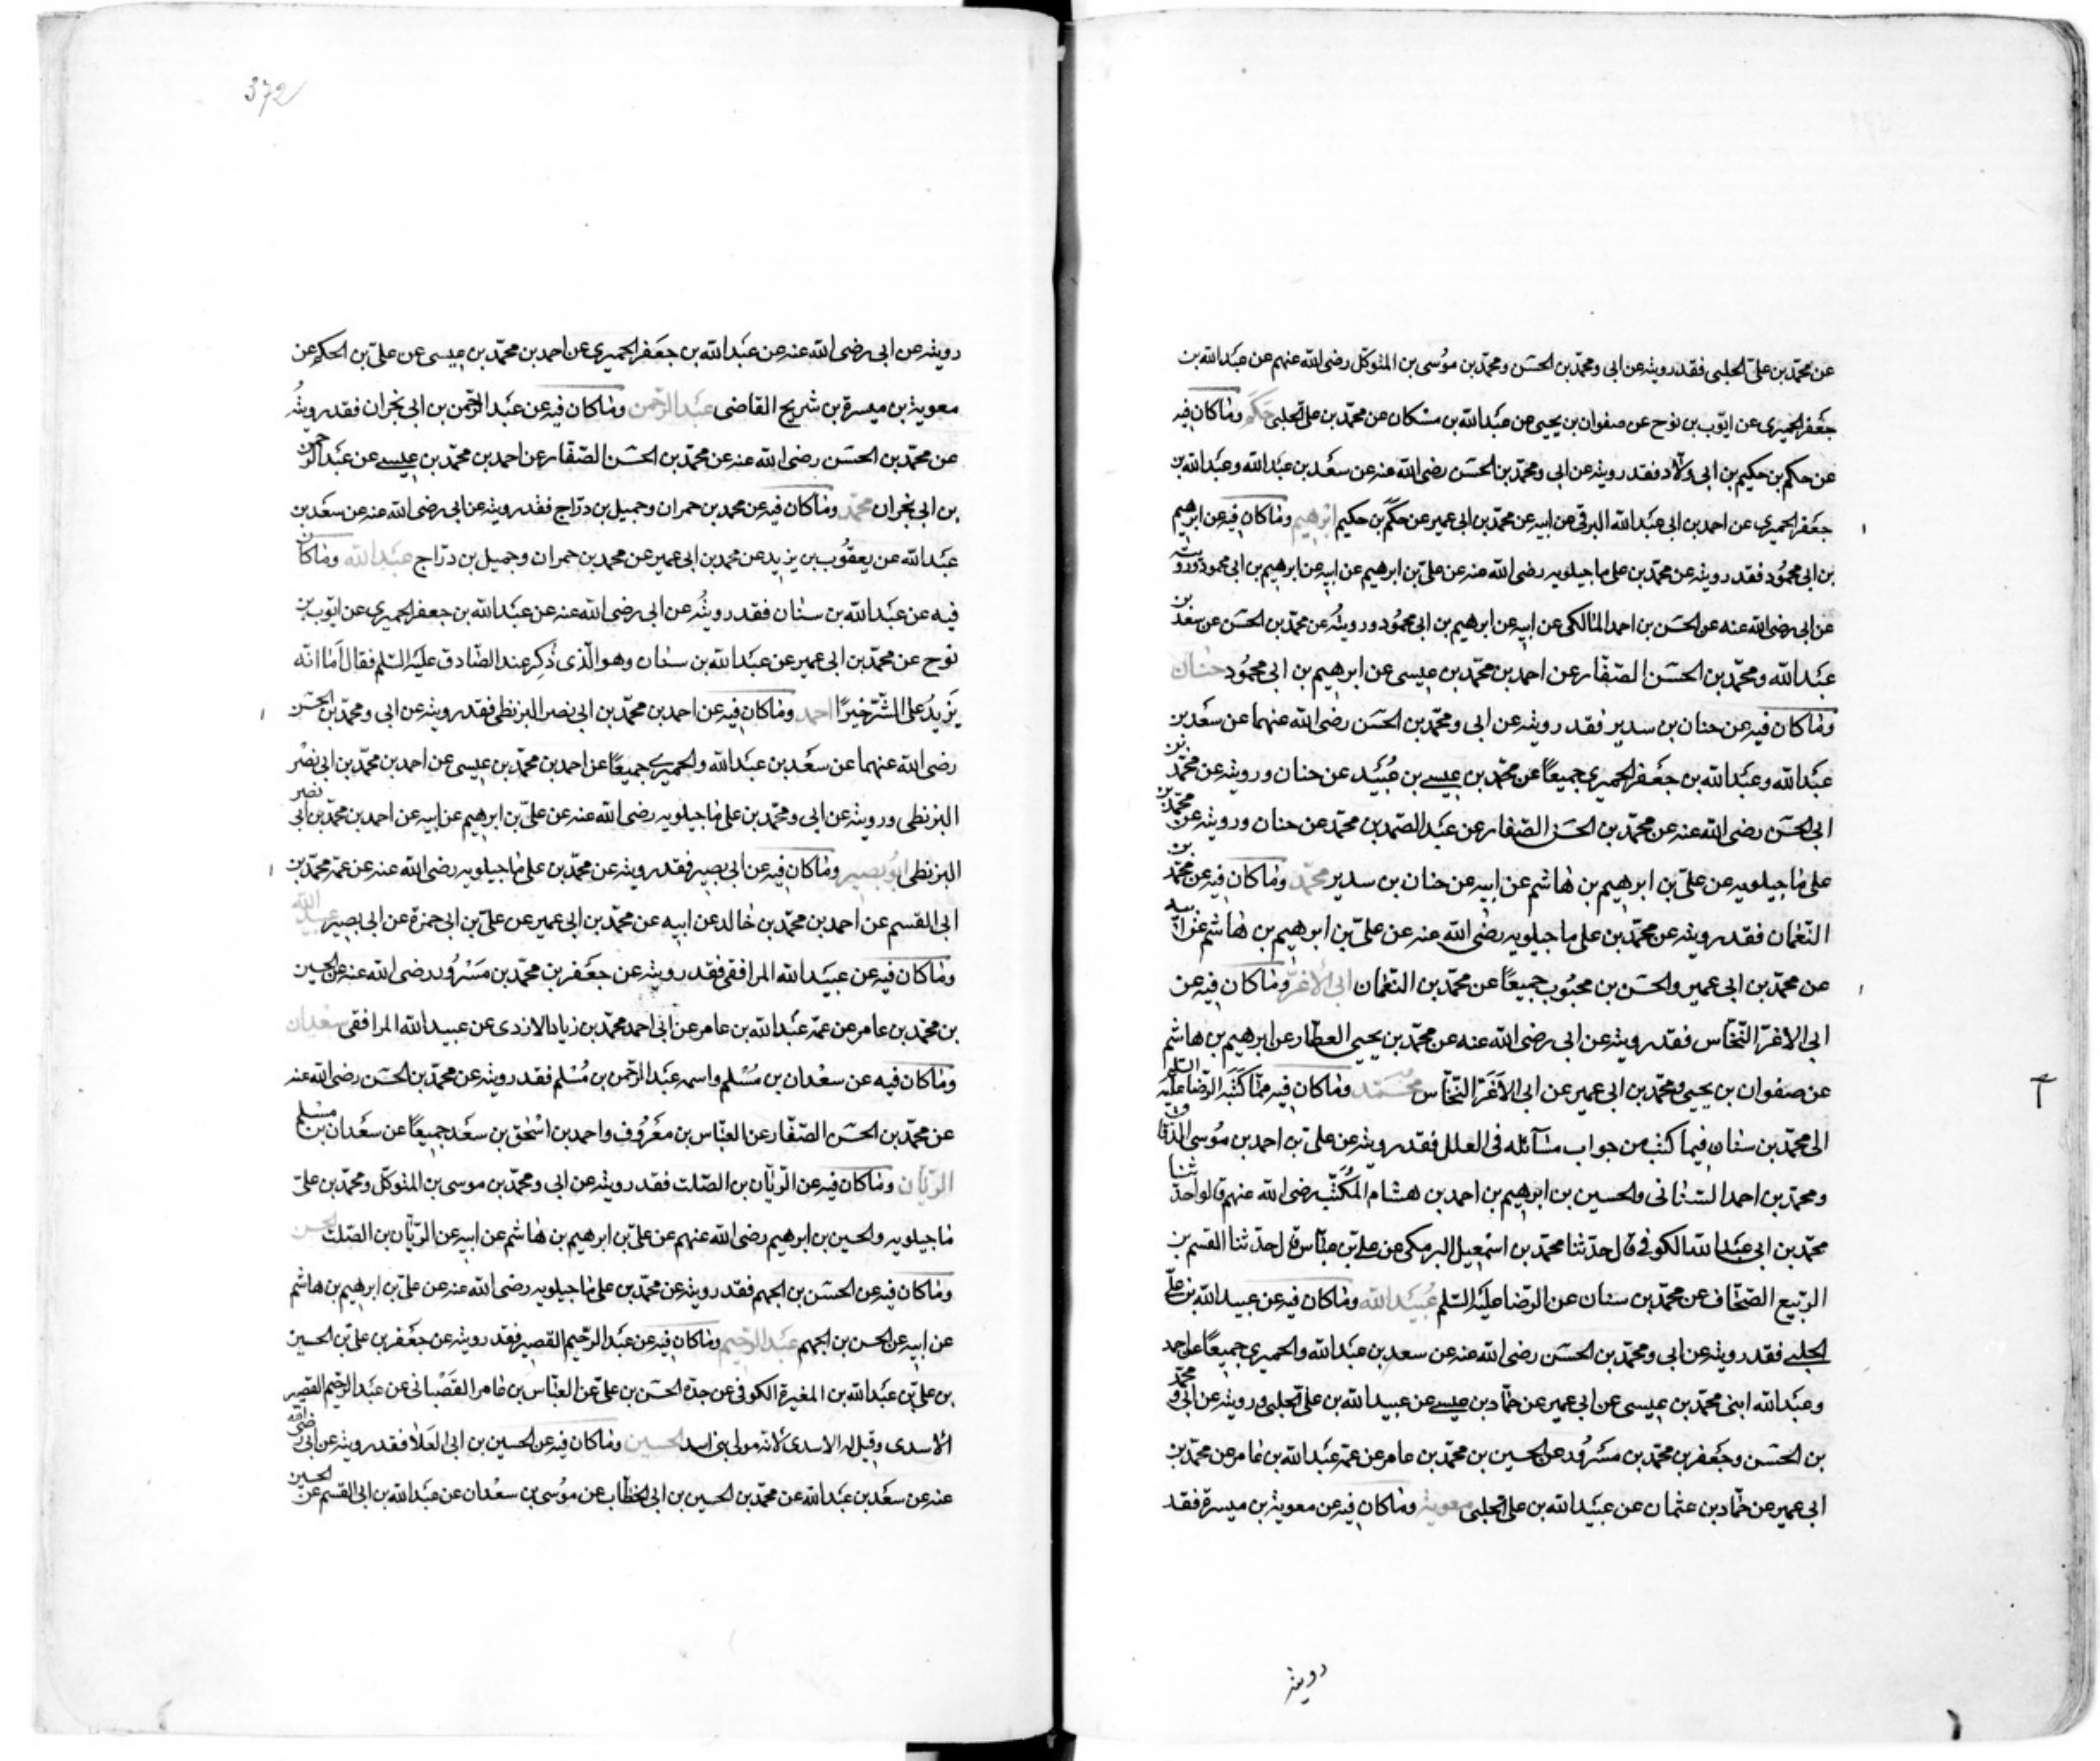 عن محمّد بن علىّ الحلبى فقد رويته عن ابى ومحمّد بن الحسَن ومحمّد بن موُسى بن المتوكّل رضى الله عنهم عن عبَدالله بن
جعَفر الحميرى عن ايّوب بن نوح عن صفوان بن يحيى عن عبَدالله بن مسْكان عن محمّد بن على الحلبى حَكَم ومٰاكان فيه
عن حكم بن حكيم بن ابى ولّاد فقد رويته عن ابى ومحمّد بن الحسَن رضى الله عنه عن سعَد بن عبَدالله وعبَدالله بن
جعَفر الحميرى عن احمد بن ابى عبَدالله البرقى عن ابيه عن محمّد بن ابى عمير عن حكَم بن حكيم ابرٰهيم ومٰاكان فيه عن ابرٰهيم
بن ابى محموُد فقد رويته عن محمّد بن على ماجيلويه رضى الله عنه عن علىّ بن ابرهيم عن ابيه عن ابرهيم بن ابى محمود ورويته
عن ابى رضى الله عنه عن الحسَن بن احمد المٰالكى عن ابيه عن ابرهيم بن ابى محموُد ورويتُه عن محمّد بن الحسَن عن سعَد بن
عبَدالله ومحمّد بن الحسَن الصّفّار عن احمد بن محمّد بن عيسى عن ابرهيم بن ابى محموُد حنٰان
ومٰاكان فيه عن حنان بن سدير فقد رويته عن ابى ومحمّد بن الحسَن رضى الله عنهما عن سعَد بن
عبَدالله وعبَدالله بن جعَفر الحميرى جميعًا عن محمّد بن عيسى بن عُبَيد عن حنان ورويته عن محمّد بن
ابى الحسَن رضى الله عنه عن محمّد بن الحسَن الصّفار عن عبَد الصّمد بن محمّد عن حنان ورويته عن محمّد بن
على مٰاجيلويه عن علىّ بن ابرهيم بن هٰاشم عن ابيه عن حنان بن سدير محمّد ومٰاكان فيه عن محمّد بن
النّعمٰان فقد رويته عن محمّد بن على ماجيلويه رضى الله عنه عن علىّ بن ابرهيم بن هٰاشم عن ابيه
عن محمّد بن ابى عمير والحسَن بن محبُوب جميعًا عن محمّد بن النّعمٰان ابى الأغرّ ومٰاكان فيه عن
ابى الاغرّ النّخّاس فقد رويته عن ابى رضى الله عنه عن محمّد بن يحيى العطّار عن ابرهيم بن هاشم
عن صفوان بن يحيى ومحمّد بن ابى عمير عن ابى الاَغَرّ النّخّاس محَمّد ومٰاكان فيه ممّا كَتَبَه الرّضٰا عليَه السّلم
الى محمّد بن سنٰان فيما كتب من جواب مسٰآئله فى العلل فقد رويته عن علىّ بن احمد بن موُسى الدّقاق
ومحمّد بن احمد السّنٰانى والحسين بن ابرهيم بن احمد بن هشام المُكَتِّب رضى الله عنهم قالوا حدّثنا
محمّد بن ابى عبَدالله الكوفى قال حدّثنا محمّد بن اسمٰعيل البرمكى عن علىّ بن عبّاس قال حدّثنا القسم بن
الرّبيع الصّحّاف عن محمّد بن سنان عن الرّضا عليَه السّلم عُبَيَدالله ومٰاكان فيه عن عبيدالله بن علىّ
الحلبى فقد رويته عن ابى ومحمّد بن الحسَن رضى الله عنه عن سعد بن عبَدالله والحميرى جميعًا عن احمد
وعبَدالله ابنى محمّد بن عيسى عن ابى عمير عن حمّاد بن عيسى عن عبيدالله بن علىّ الحلبى ورويته عن ابى ومحمّد
بن الحسَن وجعَفر بن محمّد بن مسَروُد عن الحسين بن محمّد بن عامر عن عمّه عبَدالله بن عٰامر عن محمّد بن
ابى عمير عن حمّاد بن عثمٰان عن عبيَدالله بن على الحلبى معوية ومٰاكان فيه عن معوية بن ميسرة فقد
رويته
372
رويته عن ابى رضى الله عنه عن عبَدالله بن جعَفر الحميرى عن احمد بن محمّد بن عيسى عن علىّ بن الحكم عن
معوية بن ميسرة بن شريح القاضى عبَدالرّحمن ومٰاكان فيه عن عبَدالرّحمن بن ابى نجران فقد رويتُه
عن محمّد بن الحسَن رضى الله عنه عن محمّد بن الحسَن الصّفّار عن احمد بن محمّد بن عيسى عن عبَدالرّحمن
بن ابى نجران محمّد ومٰاكان فيه عن محمد بن حمران وجميل بن درّاج فقد رويته عن ابى رضى الله عنه عن سعَد بن
عبَدالله عن يعقوُب بن يزيد عن محمد بن ابى عمير عن محمد بن حمران وجميل بن درّاج عبَدالله ومٰاكان
فيه عن عبَدالله بن سنٰان فقد رويتُه عن ابى رضى الله عنه عن عبَدالله بن جعفر الحميرى عن ايّوب بن
نوح عن محمّد بن ابى عمير عن عبَدالله بن سنٰان وهو الّذى ذُكِر عند الصّادق عليَه السّلم فقال اَمٰا انّه
يَزيدُ على السّنّ خيرًا احمد ومٰاكان فيه عن احمد بن محمّد بن ابى نصر البزنطى فقد رويته عن ابى ومحمّد بن الحسَن
رضى الله عنهما عن سعَد بن عبَدالله والحميرى جميعًا عن احمد بن محمّد بن عيسى عن احمد بن محمّد بن ابى نصْر
البزنطى ورويته عن ابى ومحمّد بن على مٰاجيلويه رضى الله عنه عن علىّ بن ابرهيم عن ابيه عن احمد بن محمّد بن ابى نصر
البزنطى ابوُبصير ومٰاكان فيه عن ابى بصير فقد رويته عن محمّد بن على مٰاجيلويه رضى الله عنه عن عمّه محمّد بن
ابى القسم عن احمد بن محمّد بن خٰالد عن ابيه عن محمّد بن ابى عمير عن علىّ بن ابى حمزة عن ابى بصير عبيدالله
ومٰاكان فيه عن عبيَدالله المرافقى فقد رويته عن جعَفر بن محمّد بن مَسْروُر رضى الله عنه عن الحسين
بن محمّد بن عامر عن عمّه عبَدالله بن عامر عن ابى احمد محمّد بن زياد الازدى عن عبيدالله المرافقى سعْدٰان
ومٰاكان فيه عن سعْدان بن مُسْلم واسمه عبَدالرّحمن بن مُسْلم فقد رويته عن محمّد بن الحسَن رضى الله عنه
عن محمّد بن الحسَن الصّفّار عن العبّاس بن معَروُف واحمد بن اسْحٰق بن سعَد جميعًا عن سعَدان بن مسْلم
الرّيّان ومٰاكان فيه عن الرّيّان بن الصّلت فقد رويته عن ابى ومحمّد بن موسى بن المتوكّل ومحمّد بن علىّ
مٰاجيلويه والحسين بن ابرهيم رضى الله عنهم عن علىّ بن ابرهيم بن هٰاشم عن ابيه عن الرّيّان بن الصّلت الحسن
ومٰاكان فيه عن الحسَن بن الجهم فقد رويته عن محمّد بن على مٰاجيلويه رضى الله عنه عن علىّ بن ابرهيم بن هاشم
عن ابيه عن الحسن بن الجهم عبَدالرّحيم ومٰاكان فيه عن عبَدالرّحيم القصير فقد رويته عن جعَفر بن علىّ بن الحسين
بن علىّ بن عبَدالله بن المغيرة الكوفى عن جدّه الحسَن بن علىّ عن العبّاس بن عٰامر القَصَبٰانى عن عبَدالرّحيم القصير
الاسدى وقيل له الاسدى لانّه مولى بنى اسد الحسين ومٰاكان فيه عن الحسين بن ابى العَلٰا فقد رويته عن ابى رضى الله
عنه عن سعَد بن عبَدالله عن محمّد بن الحسين بن ابى الخطّاب عن موُسى بن سعْدان عن عبَدالله بن ابى القسم عن الحسين